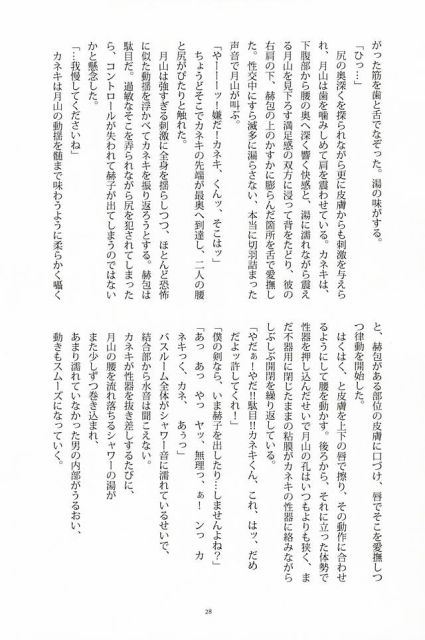 がった筋を歯と舌でなぞった。湯の味がする。
「ひっ…」
尻の奥深くを探られながら更に皮膚からも刺激を与えら
れ、月山は歯を噛みしめて肩を震わせている。カネキは、
下腹部から腰の奥へ深く響く快感と、湯に濡れながら震え
る月山を見下ろす満足感の双方に浸って背をたどり、彼の
右肩の下、赫包の上のかすかに膨らんだ箇所を舌で愛撫し
た。性交中にすら滅多に漏らさない、本当に切羽詰まった
声音で月山が叫ぶ。
「やーーーッ！嫌だ！カネキ、くんッ、そこはッ」
ちょうどそこでカネキの先端が最奥へ到達し、二人の腰
と尻がぴたりと触れた。
月山は強すぎる刺激に全身を揺らしつつ、ほとんど恐怖
に似た動揺を浮かべてカネキを振り返ろうとする。赫包は
駄目だ。過敏なそこを弄られながら尻を犯されてしまった
ら、コントロールが失われて赫子が出てしまうのではない
かと懸念した。
「…我慢してくださいね」
カネキは月山の動揺を髄まで味わうように柔らかく囁く
と、赫包がある部位の皮膚に口づけ、唇でそこを愛撫しつ
つ律動を開始した。
はくはく、と皮膚を上下の唇で擦り、その動作に合わせ
るようにして腰を動かす。後ろから、それに立った体勢で
性器を押し込んだせいで月山の孔はいつもよりも狭く、ま
だ不器用に閉じたままの粘膜がカネキの性器に絡みながら
しぶしぶ開閉を繰り返している。
「やだぁ！やだ!!駄目!!カネキくん、これ、はッ、だめ
だよッ許してくれ！」
「僕の剣なら、いま赫子を出したり…しませんよね？」
「あっ　あっ　やっ　ヤッ、無理っ、ぁ！　ンっ　カ
ネキっく、カネ、あぅっ」
バスルーム全体がシャワー音に濡れているせいで、
結合部から水音は聞こえない。
カネキが性器を抜き差しするたびに、
月山の腰を流れ落ちるシャワーの湯が
また少しずつ巻き込まれ、
あまり濡れていなかった男の内部がうるおい、
動きもスムーズになっていく。
28